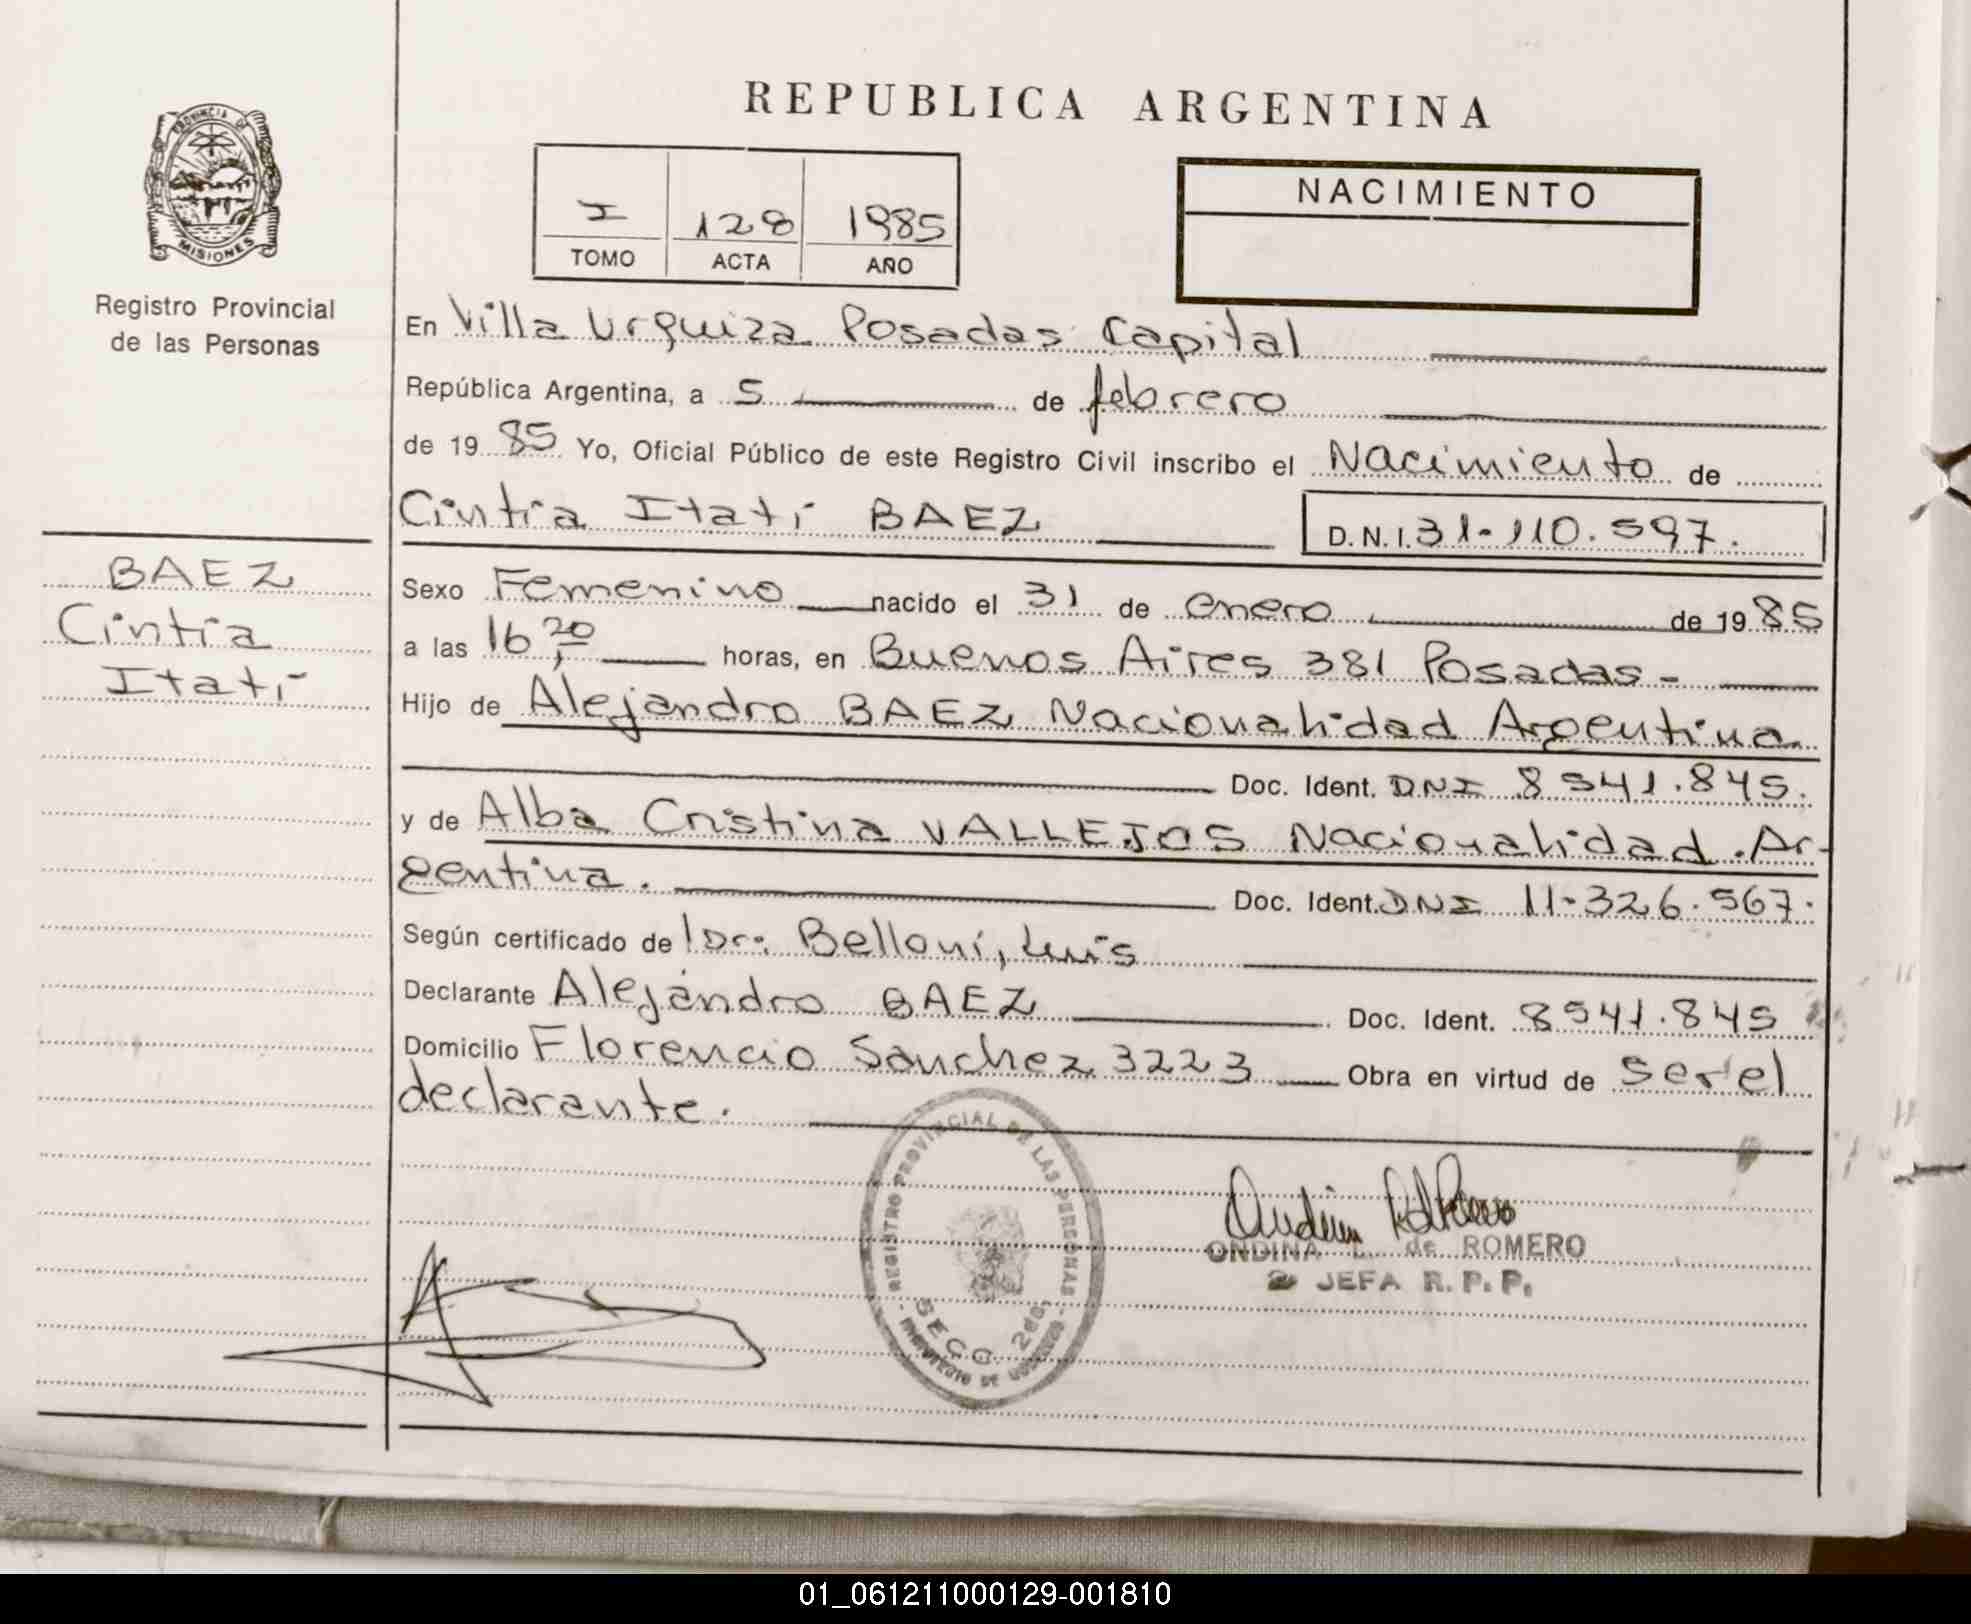 REPUBLICA ARGENTINA
PROVINCIA DE
MISIONES
Registro Provincial
de las Personas
I 128 1985
TOMO ACTA AÑO
NACIMIENTO
En Villa Urquiza Posadas Capital
República Argentina, a 5 de febrero
de 1985 Yo, Oficial Público de este Registro Civil inscribo el Nacimiento de
Cintia Itatí BAEZ D.N.I. 31-110.597.
BAEZ
Cintia
Itatí
Sexo Femenino nacido el 31 de enero de 1985
a las 16,20 horas, en Buenos Aires 381 Posadas-
Hijo de Alejandro BAEZ Nacionalidad Argentina
Doc. Ident. DNI 8541.845.
y de Alba Cristina VALLEJOS Nacionalidad Ar-
gentina. Doc. Ident. DNI 11-326.567.
Según certificado de Dr: Belloni, Luis
Declarante Alejandro BAEZ Doc. Ident. 8541.845
Domicilio Florencio Sanchez 3223 Obra en virtud de ser el
declarante.
REGISTRO PROVINCIAL DE LAS PERSONAS
SECC. 2da
ONDINA L. de ROMERO
JEFA R. P. P.
01_061211000129-001810